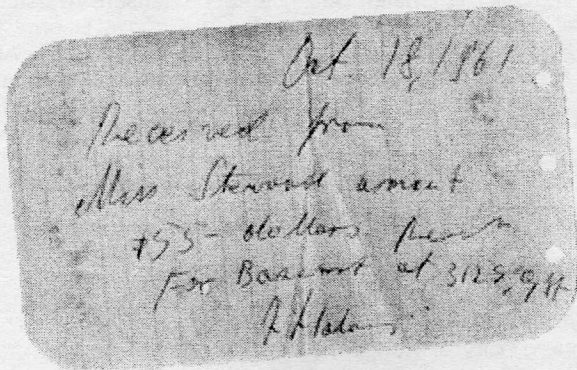 Oct 18, 1961
Received from
Miss Steward amout
$55- dollars Rent
For Basemt at 312 S. 9th